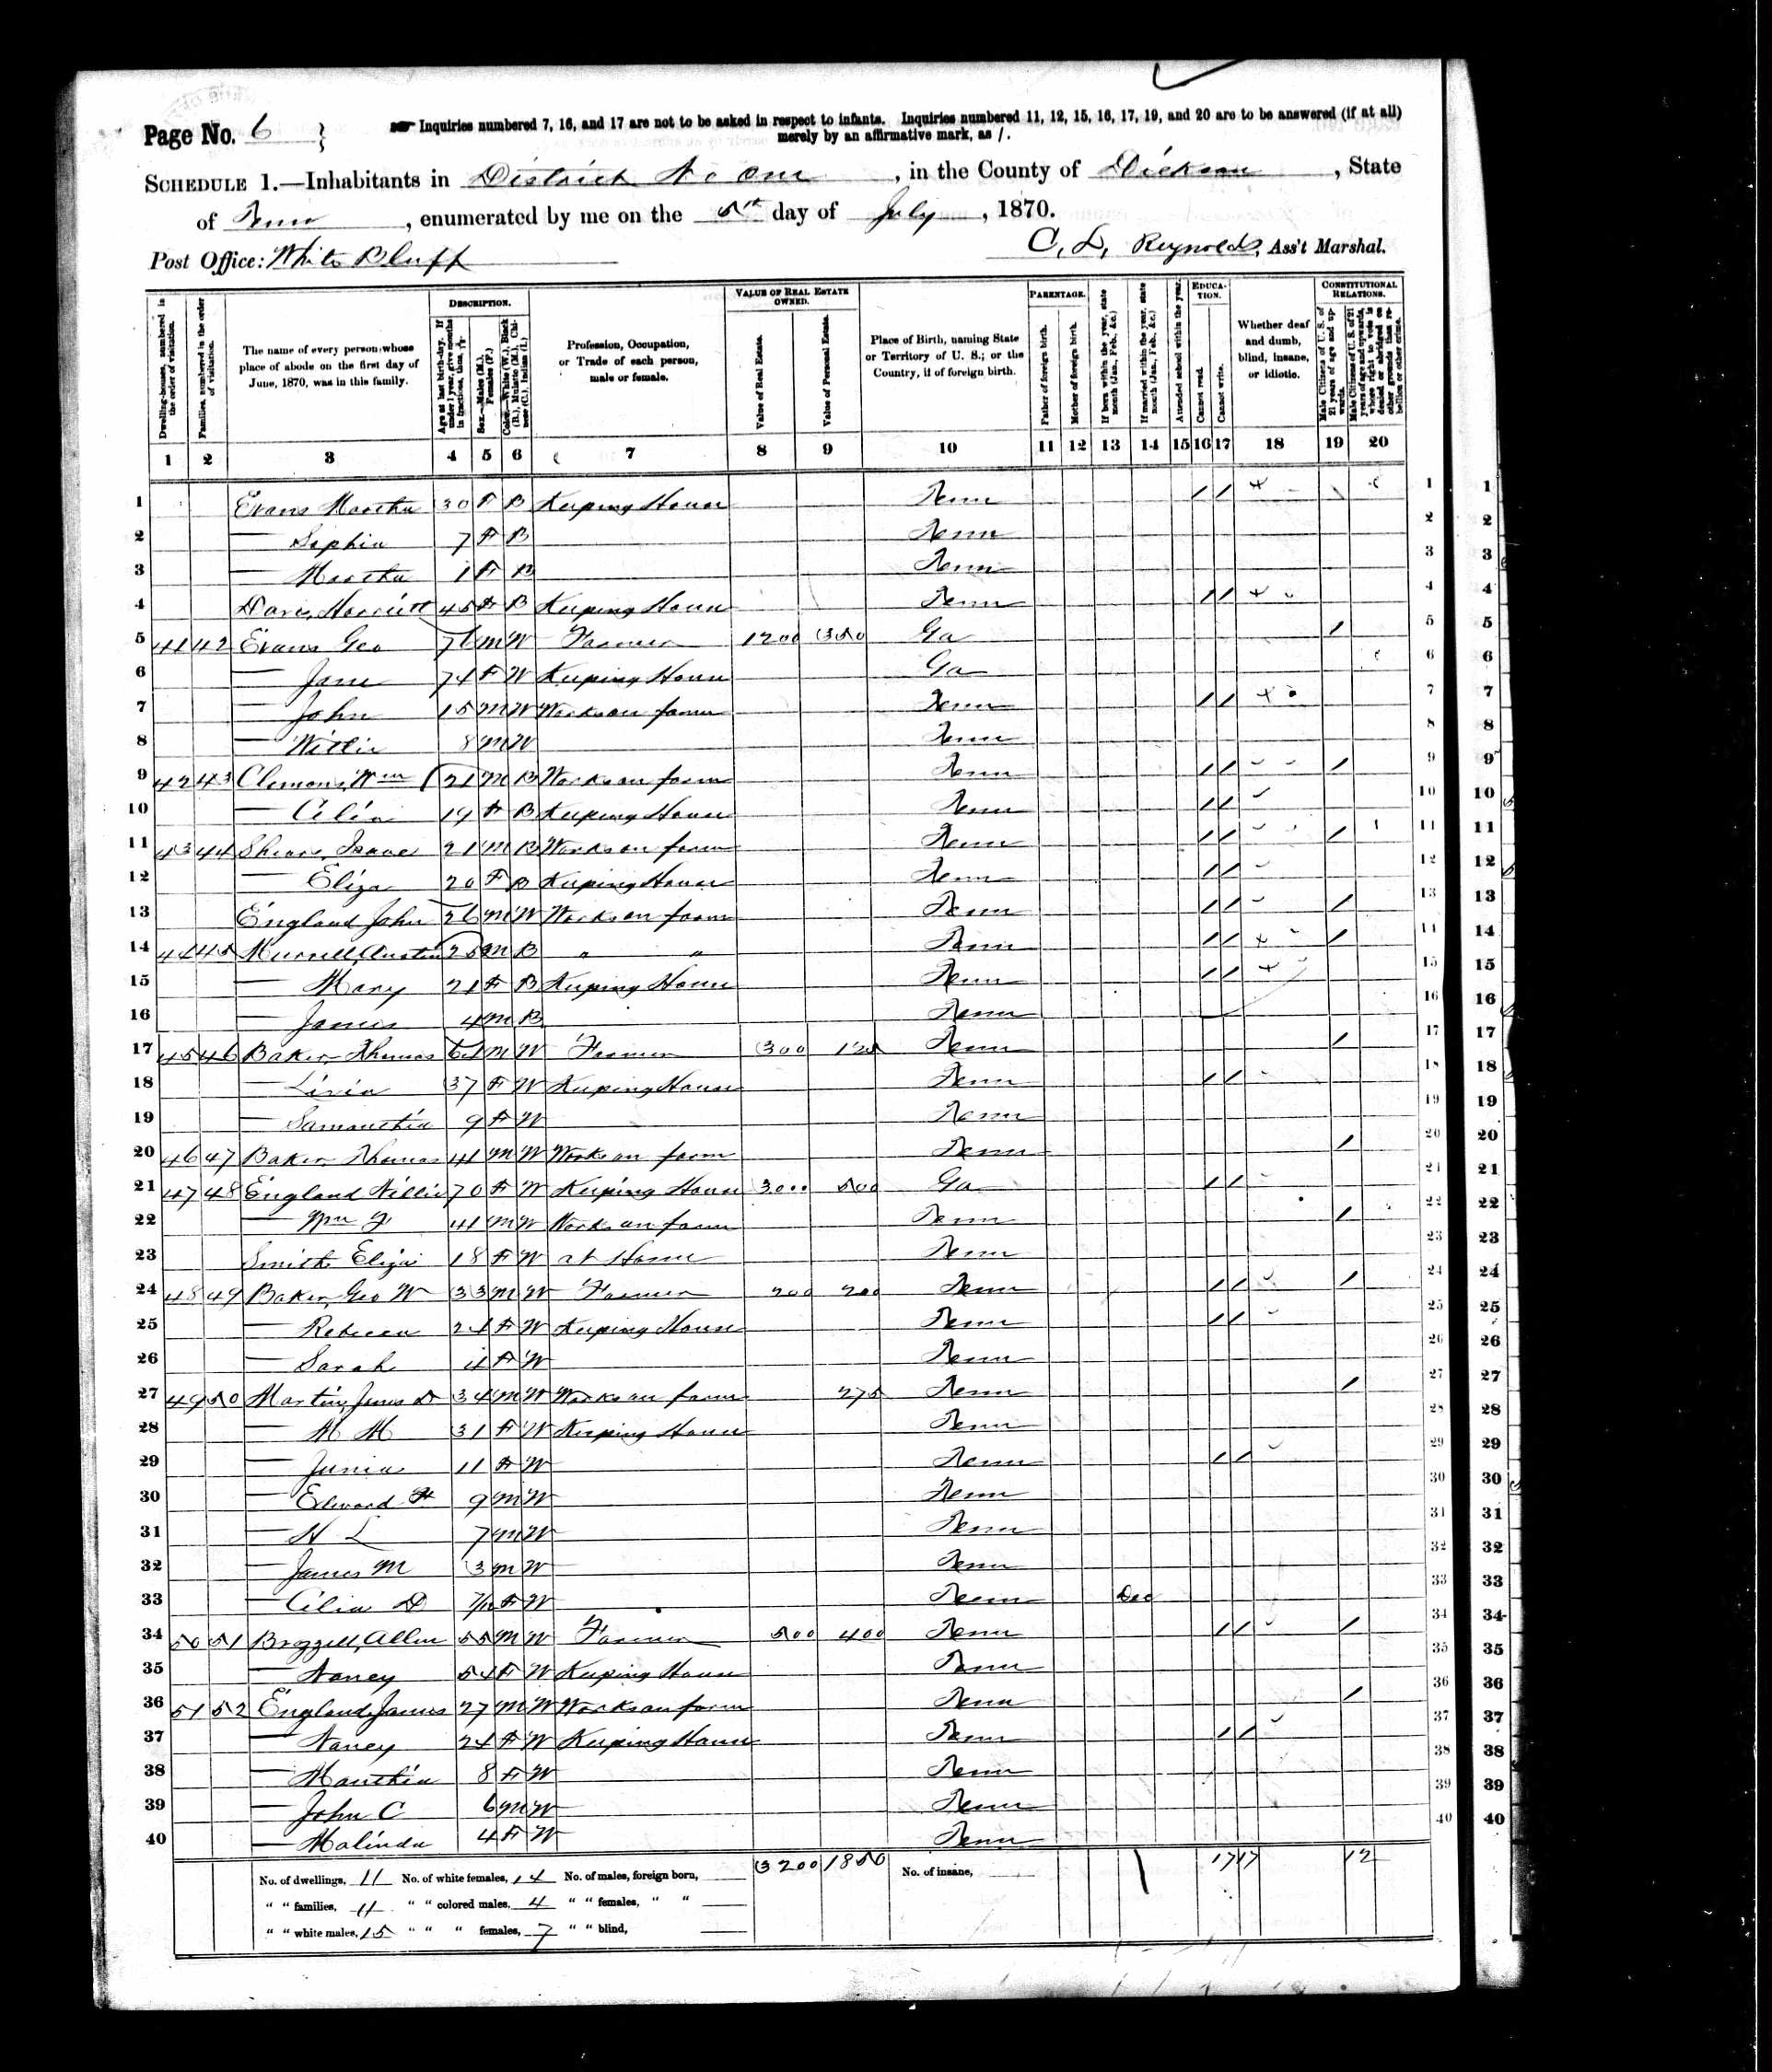 Page No. 6
Inquiries numbered 7, 16, and 17 are not to be asked in respect to infants. Inquiries numbered 11, 12, 15, 16, 17, 19, and 20 are to be answered (if at all)
merely by an affirmative mark, as /.
SCHEDULE 1.—Inhabitants in District No One, in the County of Dickson, State
of Tenn, enumerated by me on the 5th day of July, 1870.
Post Office: White Bluff
C. L. Reynolds, Ass't Marshal.
Dwelling-houses, numbered in the order of visitation.
Families, numbered in the order of visitation.
The name of every person whose place of abode on the first day of June, 1870, was in this family.
DESCRIPTION.
Age at last birth-day. If under 1 year, give months in fractions, thus, 3/12
Sex.—Males (M.), Females (F.)
Color.—White (W.), Black (B.), Mulatto (M.), Chinese (C.), Indian (I.)
Profession, Occupation, or Trade of each person, male or female.
VALUE OF REAL ESTATE OWNED.
Value of Real Estate.
Value of Personal Estate.
Place of Birth, naming State or Territory of U. S.; or the Country, if of foreign birth.
PARENTAGE.
Father of foreign birth.
Mother of foreign birth.
If born within the year, state month (Jan., Feb., &c.)
If married within the year, state month (Jan., Feb., &c.)
Attended school within the year.
EDUCATION.
Cannot read.
Cannot write.
Whether deaf and dumb, blind, insane, or idiotic.
CONSTITUTIONAL RELATIONS.
Male Citizens of U. S. of 21 years of age and upwards.
Male Citizens of U. S. of 21 years of age and upwards, whose right to vote is denied or abridged on other grounds than rebellion or other crime.
1 2 3 4 5 6 7 8 9 10 11 12 13 14 15 16 17 18 19 20
1 Evans Martha 30 F B Keeping House Tenn / / 1
2 — Sophia 7 F B Tenn 2
3 — Martha 1 F B Tenn 3
4 Harriett 45 F B Keeping House Tenn / / 4
5 41 42 Evans Geo 76 M W Farmer 1200 350 Ga / 5
6 — Jane 74 F W Keeping House Ga 6
7 — John 15 M W Works on farm Tenn / / 7
8 — Willie 8 M W Tenn 8
9 42 43 Clemons, Wm 21 M B Works on farm Tenn / / / 9
10 — Celia 19 F B Keeping House Tenn / / 10
11 43 44 Isaac 21 M B Works on farm Tenn / / / 11
12 — Eliza 20 F B Keeping House Tenn / / 12
13 England John 26 M W Works on farm Tenn / / / 13
14 44 45 Murrell, Austin 25 M B " " Tenn / / / 14
15 — Mary 21 F B Keeping House Tenn / / 15
16 — James 4 M B Tenn 16
17 45 46 Baker, Thomas 61 M W Farmer 300 125 Tenn / 17
18 — 37 F W Keeping House Tenn / / 18
19 — Samanthia 9 F W Tenn 19
20 46 47 Baker, Thomas 41 M W Works on farm Tenn / 20
21 47 48 England 70 F W Keeping House 3000 500 Ga / / 21
22 — Wm 41 M W Works on farm Tenn / 22
23 Smith Eliza 18 F W at Home Tenn 23
24 48 49 Baker, Geo W 33 M W Farmer 200 200 Tenn / / / 24
25 — Rebecca 24 F W Keeping House Tenn / / 25
26 — Sarah 4 F W Tenn 26
27 49 50 Martin, 34 M W Works on farm 275 Tenn / 27
28 — M M 31 F W Keeping House Tenn 28
29 — Junia 11 F W Tenn / / 29
30 — Edward H 9 M W Tenn 30
31 — N L 7 M W Tenn 31
32 — James M 3 M W Tenn 32
33 — Celia D 7/12 F W Tenn Dec 33
34 50 51 Brazzell, Allen 55 M W Farmer 500 400 Tenn / / / 34
35 — Nancy 54 F W Keeping House Tenn 35
36 51 52 England, James 27 M W Works on farm Tenn / 36
37 — Nancy 24 F W Keeping House Tenn / / 37
38 — Manthia 8 F W Tenn 38
39 — John C 6 M W Tenn 39
40 — Malinda 4 F W Tenn 40
No. of dwellings, 11 No. of white females, 14 No. of males, foreign born, 3200 1850 No. of insane, 17 17 12
" " families, 11 " " colored males, 4 " " females, " "
" " white males, 15 " " " females, 7 " " blind,